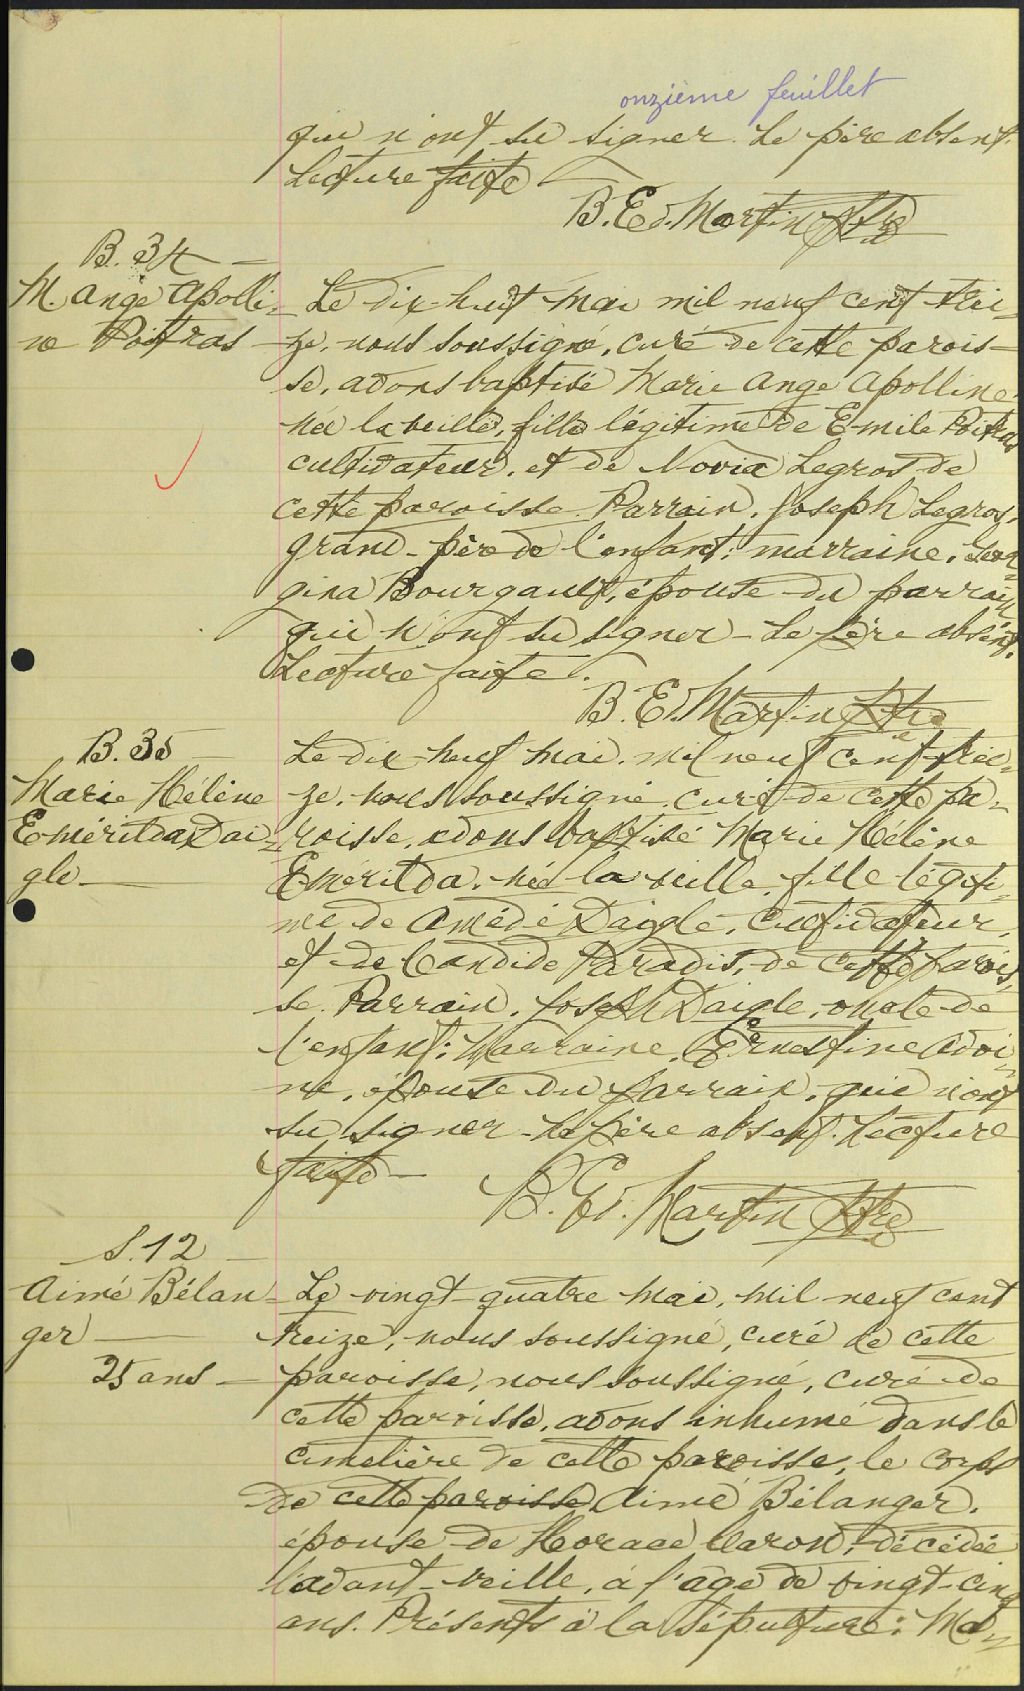 onzième feuillet
qui n'ont su signer. Le père absent.
Lecture faite
B. Ed. Martin Ptre
B. 34
M. Ange Apolli-
ne Poitras
Le dix-huit mai mil neuf cent trei-
ze, nous soussigné, curé de cette parois-
se, avons baptisé Marie Ange Apolline
née la veille, fille légitime de Emile Poitras
cultivateur, et de Novia Legros de
cette paroisse. Parrain, Joseph Legros,
grand-père de l'enfant; marraine, Geor-
gina Bourgault, épouse du parrain
qui n'ont su signer - Le père absent.
Lecture faite.
B. Ed. Martin Ptre
B. 35
Marie Hélène
Emérilda Dai-
gle
Le dix-neuf mai, mil neuf cent trei-
ze, nous soussigné, curé de cette pa-
roisse, avons baptisé Marie Hélène
Emérilda, née la veille, fille légiti-
me de Amédé Daigle, cultivateur,
et de Candide Paradis, de cette parois-
se. Parrain, Joseph Daigle, oncle de
l'enfant; marraine, Ernestine
ne, épouse du parrain, qui n'ont
su signer - Le père absent. Lecture
faite -
B. Ed. Martin Ptre
S. 12
Aimé Bélan-
ger
25 ans -
Le vingt-quatre mai, mil neuf cent
treize, nous soussigné, curé de cette
paroisse, nous soussigné, curé de
cette paroisse, avons inhumé dans le
cimetière de cette paroisse, le corps
de cette paroisse, Aimé Bélanger,
épouse de Horace Caron, décédée
l'avant-veille, à l'âge de vingt-cinq
ans. Présents à la sépulture: Ma-